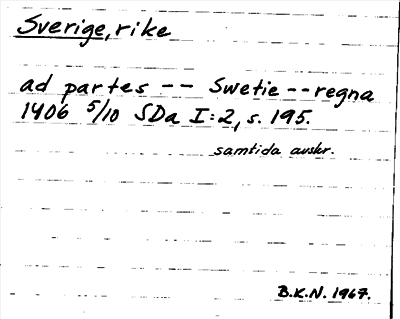 Sverige, rike
ad partes -- Swetie -- regna
1406 5/10 SDa I:2, s. 195.
samtida avskr.
B.K.N. 1967.